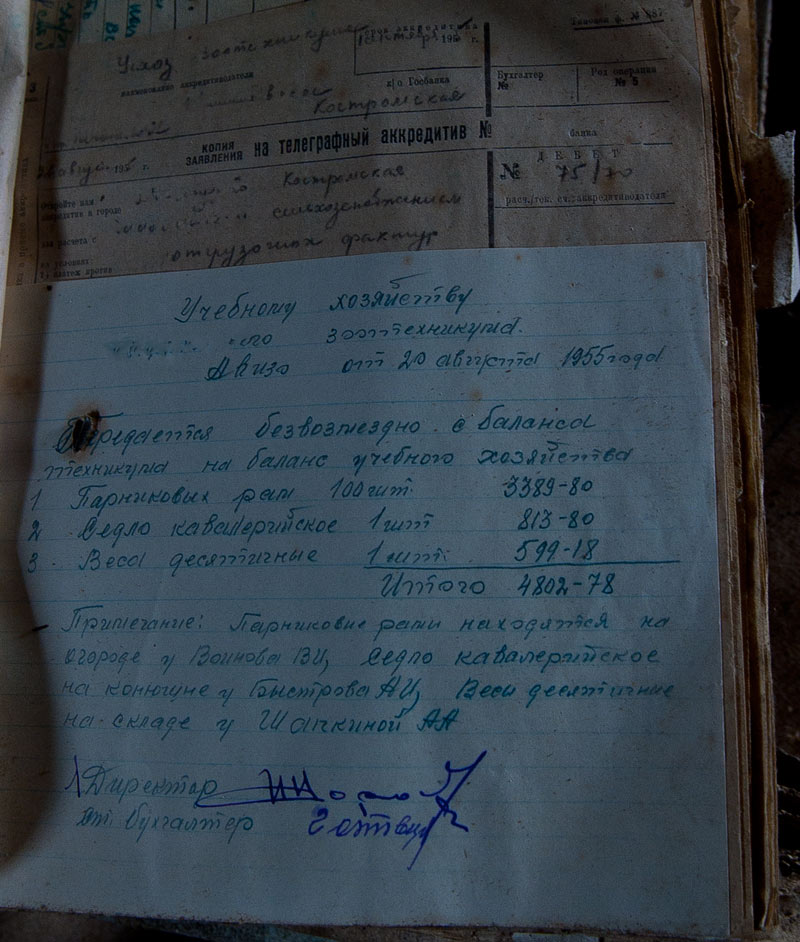 Типовая ф. № 487
Учхоз зоотехникума
наименование аккредитователя
срок аккредитива
195 г.
к|о Госбанка
Бухгалтер
№
Род операции
№ 5
Костромская
КОПИЯ ЗАЯВЛЕНИЯ на телеграфный аккредитив №
банка
август 195 г.
ДЕБЕТ
№ 75/70
расч./тек. сч. аккредитователя
Костромская
аккредитив в городе
для расчета с сельхозснабжением
отгрузочных фактур
Учебному хозяйству
зоотехникума.
Авизо от 20 августа 1955 года
Передается безвозмездно с баланса
техникума на баланс учебного хозяйства
1 Парниковых рам 100 шт. 3389-80
2 Седло кавалерийское 1 шт 813-80
3 Веса десятичные 1 шт. 599-18
Итого 4802-78
Примечание: Парниковые рамы находятся на
огороде у Воинова ВИ, Седло кавалерийское
на конюшне у Быстрова АИ, Весы десятичные
на складе у Шапкиной АА
Директор
Ст. бухгалтер